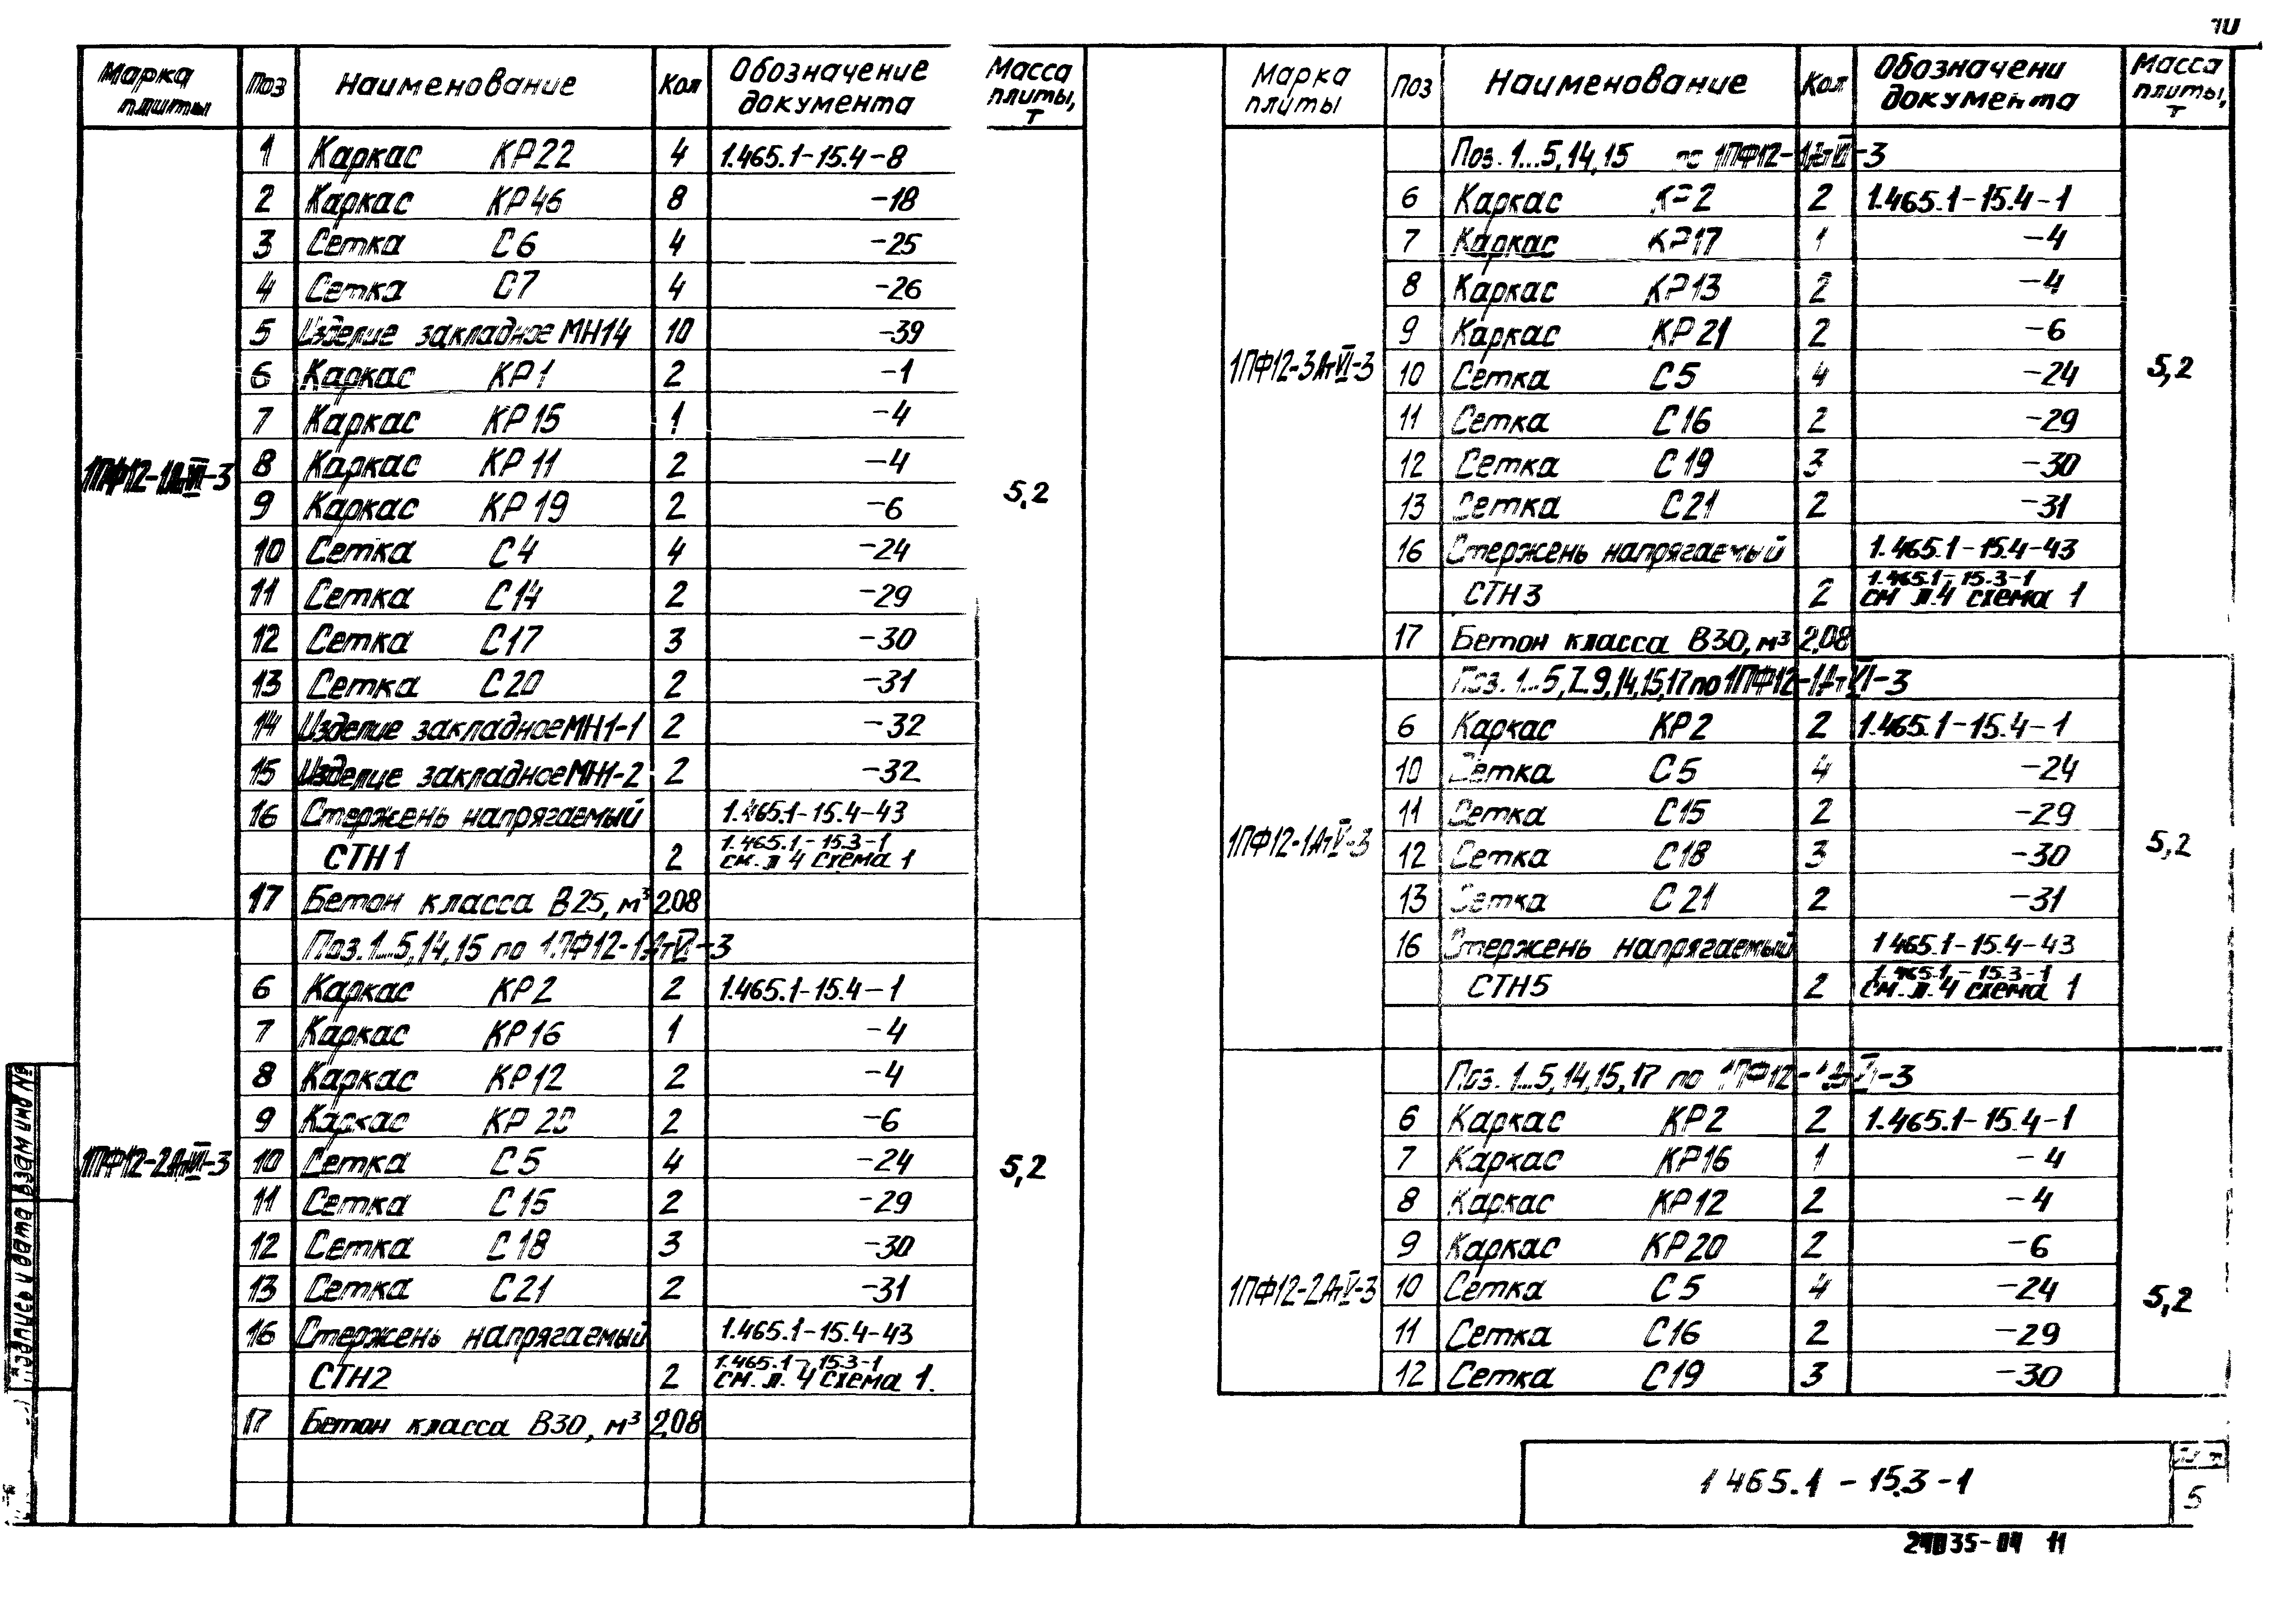 10
Марка плиты Поз Наименование Кол Обозначение документа Масса плиты, т
1 Каркас КР22 4 1.465.1-15.4-8
2 Каркас КР46 8 -18
3 Сетка С6 4 -25
4 Сетка С7 4 -26
5 Изделие закладное МН14 10 -39
6 Каркас КР1 2 -1
7 Каркас КР15 1 -4
1ПФ12-1АтVI-3 8 Каркас КР11 2 -4
9 Каркас КР19 2 -6 5,2
10 Сетка С4 4 -24
11 Сетка С14 2 -29
12 Сетка С17 3 -30
13 Сетка С20 2 -31
14 Изделие закладное МН1-1 2 -32
15 Изделие закладное МН1-2 2 -32
16 Стержень напрягаемый 1.465.1-15.4-43
СТН1 2 1.465.1-15.3-1 см. л 4 схема 1
17 Бетон класса В25, м³ 2,08
Поз. 1...5, 14, 15 по 1ПФ12-1АтVI-3
6 Каркас КР2 2 1.465.1-15.4-1
7 Каркас КР16 1 -4
8 Каркас КР12 2 -4
9 Каркас КР20 2 -6
1ПФ12-2АтVI-3 10 Сетка С5 4 -24 5,2
11 Сетка С15 2 -29
12 Сетка С18 3 -30
13 Сетка С21 2 -31
16 Стержень напрягаемый 1.465.1-15.4-43
СТН2 2 1.465.1-15.3-1 см. л. 4 схема 1.
17 Бетон класса В30, м³ 2,08
Марка плиты Поз Наименование Кол Обозначени документа Масса плиты, т
Поз. 1...5, 14, 15 по 1ПФ12-1АтVI-3
6 Каркас КР2 2 1.465.1-15.4-1
7 Каркас КР17 1 -4
8 Каркас КР13 2 -4
9 Каркас КР21 2 -6
1ПФ12-3АтVI-3 10 Сетка С5 4 -24 5,2
11 Сетка С16 2 -29
12 Сетка С19 3 -30
13 Сетка С21 2 -31
16 Стержень напрягаемый 1.465.1-15.4-43
СТН3 2 1.465.1-15.3-1 см л.4 схема 1
17 Бетон класса В30, м³ 2,08
Поз. 1...5, 7...9, 14, 15, 17 по 1ПФ12-1АтVI-3
6 Каркас КР2 2 1.465.1-15.4-1
10 Сетка С5 4 -24
11 Сетка С15 2 -29
1ПФ12-1АтV-3 12 Сетка С18 3 -30 5,2
13 Сетка С21 2 -31
16 Стержень напрягаемый 1465.1-15.4-43
СТН5 2 1.465.1-15.3-1 см. л. 4 схема 1
Поз. 1...5, 14, 15, 17 по 1ПФ12-1АтVI-3
6 Каркас КР2 2 1.465.1-15.4-1
7 Каркас КР16 1 -4
8 Каркас КР12 2 -4
9 Каркас КР20 2 -6
1ПФ12-2АтV-3 10 Сетка С5 4 -24 5,2
11 Сетка С16 2 -29
12 Сетка С19 3 -30
1465.1-15.3-1
5
24035-04 11